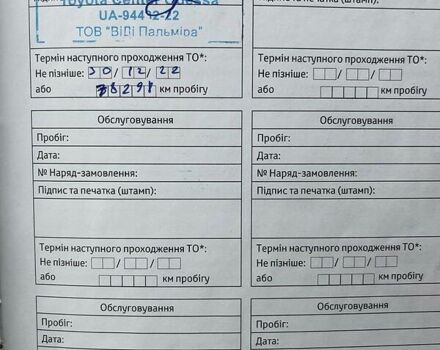 Toyota Center Odessa
Підпис та печатка (штамп):
UA-944 12-22
ТОВ "ВіДі Пальміра"
Термін наступного проходження ТО*:
Не пізніше: 30/12/22
або км пробігу
Термін наступного проходження ТО*:
Не пізніше: / /
або км пробігу
Обслуговування
Пробіг:
Дата:
№ Наряд-замовлення:
Підпис та печатка (штамп):
Термін наступного проходження ТО*:
Не пізніше: / /
або км пробігу
Обслуговування
Пробіг:
Дата:
№ Наряд-замовлення:
Підпис та печатка (штамп):
Термін наступного проходження ТО*:
Не пізніше: / /
або км пробігу
Обслуговування
Пробіг:
Дата:
Обслуговування
Пробіг:
Дата: